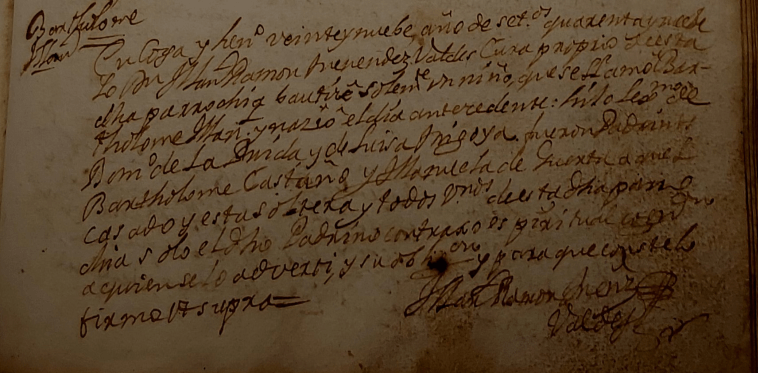 Bartholome
Man.
En Coya y hen.º veinteynuebe, año de set.os quarentaynuebe
Yo Dn Man Ramon Menendez Valdes Cura proprio deesta
dha parrochiª bautizê solem.te un niño, que se llamô Bar-
tholome Man. y naziô el dia antecedente: hijo lex.mo de
Dom.º de La Prida y de Luisa Migoya. fueron Padrinos
Bartholome Castaño y Manuela de Huerta aquel
casado y esta soltera y todos v.nos deesta dha parro
chia solo el dho Padrino contraxo espiritual
aquien se lo adverti, y su obli.on y para que conste lo
firmo Vt supra=
Man Ramon Menz
Valdes